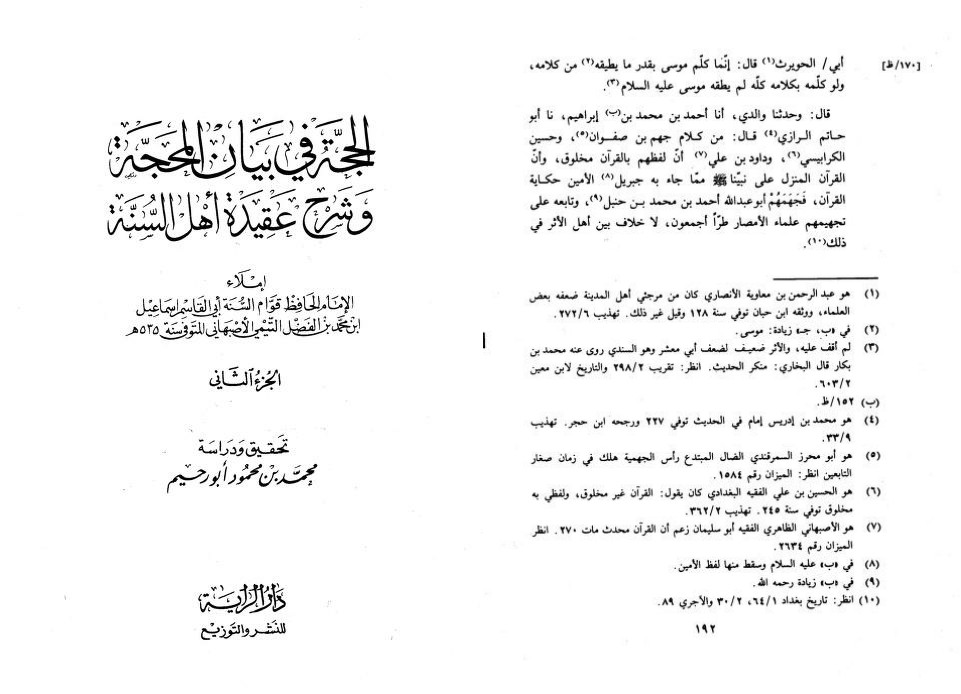 الحجة في بيان المحجة
وشرح عقيدة أهل السنة
إملاء
الإمام الحافظ قوام السنة أبي القاسم إسماعيل
ابن محمد بن الفضل التيمي الأصبهاني المتوفى سنة ٥٣٥هـ
الجزء الثاني
تحقيق ودراسة
محمد بن محمود أبو رحيم
دار الراية
للنشر والتوزيع
[١٧٠/ظ] أبي/ الحويرث(١) قال: إنّما كلّم موسى بقدر ما يطيقه(٢) من كلامه،
ولو كلّمه بكلامه كلّه لم يطقه موسى عليه السلام(٣).
قال: وحدثنا والدي، أنا أحمد بن محمد بن(ب) إبراهيم، نا أبو
حاتم الرازي(٤) قال: من كلام جهم بن صفوان(٥)، وحسين
الكرابيسي(٦)، وداود بن علي(٧) أنّ لفظهم بالقرآن مخلوق، وأنّ
القرآن المنزل على نبيّنا ﷺ ممّا جاء به جبريل(٨) الأمين حكاية
القرآن، فَجَهَمَهُمْ أبو عبدالله أحمد بن محمد بن حنبل(٩)، وتابعه على
تجهيمهم علماء الأمصار طرّاً أجمعون، لا خلاف بين أهل الأثر في
ذلك(١٠).
(١) هو عبد الرحمن بن معاوية الأنصاري كان من مرجئي أهل المدينة ضعفه بعض
العلماء، ووثقه ابن حبان توفي سنة ١٢٨ وقيل غير ذلك. تهذيب ٢٧٢/٦.
(٢) في «ب، جـ» زيادة: موسى.
(٣) لم أقف عليه، والأثر ضعيف لضعف أبي معشر وهو السندي روى عنه محمد بن
بكار قال البخاري: منكر الحديث. انظر: تقريب ٢٩٨/٢ والتاريخ لابن معين
٦٠٣/٢.
(ب) ١٥٢/ظ.
(٤) هو محمد بن إدريس إمام في الحديث توفي ٢٢٧ ورجحه ابن حجر. تهذيب
٣٣/٩.
(٥) هو أبو محرز السمرقندي الضال المبتدع رأس الجهمية هلك في زمان صغار
التابعين انظر: الميزان رقم ١٥٨٤.
(٦) هو الحسين بن علي الفقيه البغدادي كان يقول: القرآن غير مخلوق، ولفظي به
مخلوق توفي سنة ٢٤٥. تهذيب ٣٦٢/٢.
(٧) هو الأصبهاني الظاهري الفقيه أبو سليمان زعم أن القرآن محدث مات ٢٧٠. انظر
الميزان رقم ٢٦٣٤.
(٨) في «ب» عليه السلام وسقط منها لفظ الأمين.
(٩) في «ب» زيادة رحمه الله.
(١٠) انظر: تاريخ بغداد ٦٤/١، ٣٠/٢ والآجري ٨٩.
١٩٢